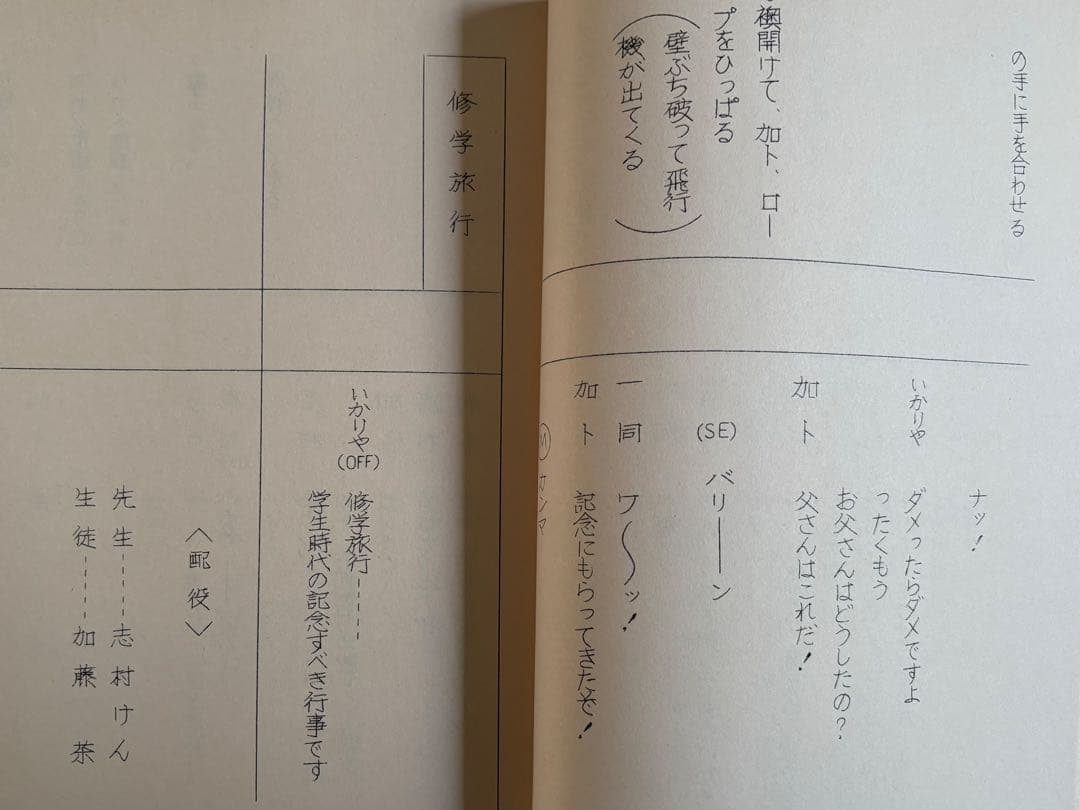 の手に手を合わせる
襖開けて、加ト、ロー
プをひっぱる
(壁ぶち破って飛行
機が出てくる)
ナッ!
いかりや
ダメったらダメですよ
ったくもう
お父さんはどうしたの?
加ト 父さんはこれだ!
(SE) バリ――ン
一同 ワ〜ッ!
加ト 記念にもらってきたぞ!
Ⓜ カンマ
修学旅行
いかりや(OFF) 修学旅行-----
学生時代の記念すべき行事です
〈配役〉
先生-----志村けん
生徒-----加藤 茶